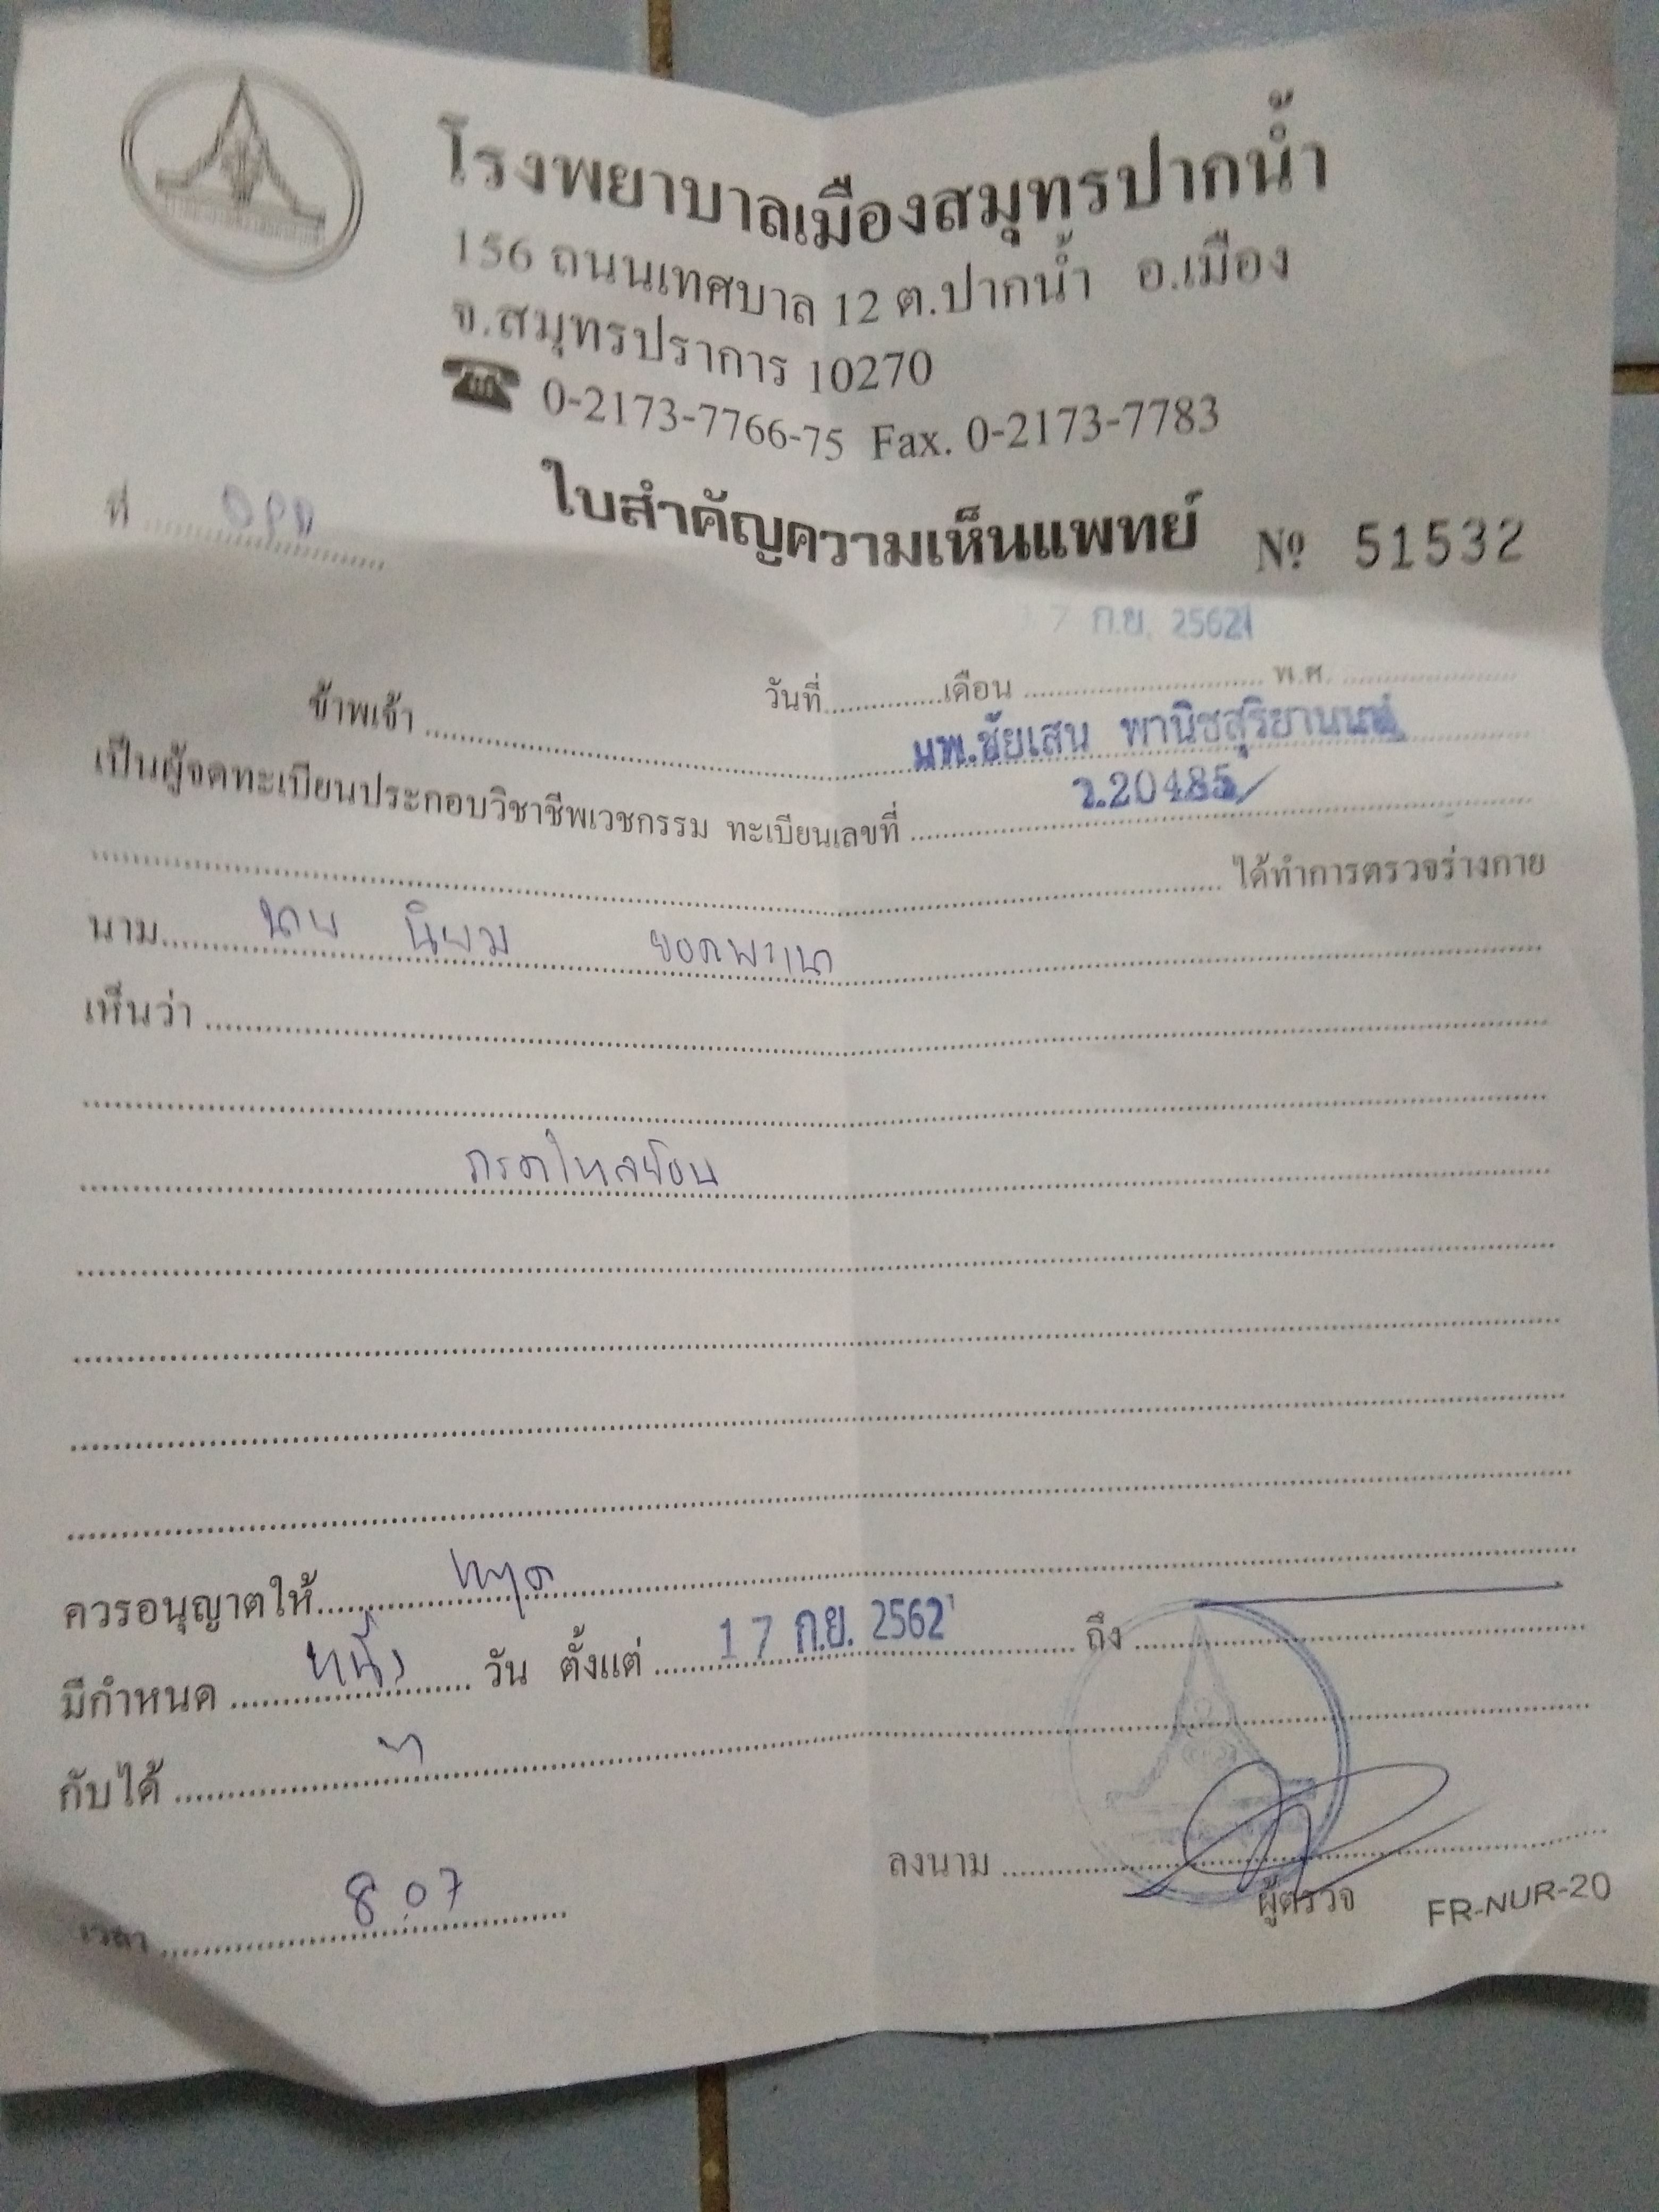 โรงพยาบาลเมืองสมุทรปากน้ำ
156 ถนนเทศบาล 12 ต.ปากน้ำ อ.เมือง
จ.สมุทรปราการ 10270
☎ 0-2173-7766-75 Fax. 0-2173-7783
ที่ OPD ใบสำคัญความเห็นแพทย์ № 51532
วันที่ 17 ก.ย. 2562 เดือน พ.ศ.
ข้าพเจ้า นพ.ชัยเสน พานิชสุริยานนท์
เป็นผู้จดทะเบียนประกอบวิชาชีพเวชกรรม ทะเบียนเลขที่ ว.20485
ได้ทำการตรวจร่างกาย
นาม นาย นิยม
เห็นว่า
กรดไหลย้อน
ควรอนุญาตให้ หยุด
มีกำหนด หนึ่ง วัน ตั้งแต่ 17 ก.ย. 2562 ถึง
กับได้
ลงนาม
ผู้ตรวจ FR-NUR-20
เวลา 8.07